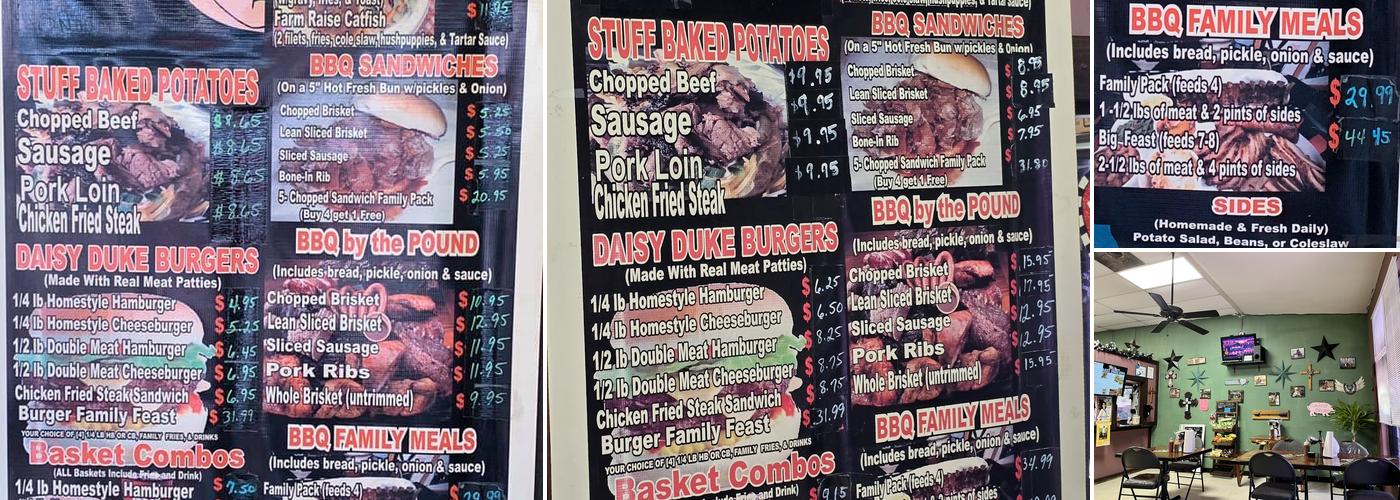 (w/gravy, fries, & Toast)
Farm Raise Catfish $ 11.95
(2 filets, fries, cole slaw, hushpuppies, & Tartar Sauce)
STUFF BAKED POTATOES
Chopped Beef $8.65
Sausage $8.65
Pork Loin $8.65
Chicken Fried Steak $8.65
DAISY DUKE BURGERS
(Made With Real Meat Patties)
1/4 lb Homestyle Hamburger $ 4.95
1/4 lb Homestyle Cheeseburger $ 5.25
1/2 lb Double Meat Hamburger $ 6.45
1/2 lb Double Meat Cheeseburger $ 6.95
Chicken Fried Steak Sandwich $ 6.95
Burger Family Feast $ 31.99
YOUR CHOICE OF [4] 1/4 LB HB OR CB, FAMILY FRIES, & DRINKS
Basket Combos
(ALL Baskets Include Fries and Drink)
1/4 lb Homestyle Hamburger $ 7.50
BBQ SANDWICHES
(On a 5" Hot Fresh Bun w/pickles & Onion)
Chopped Brisket $ 5.25
Lean Sliced Brisket $ 5.50
Sliced Sausage $ 5.25
Bone-In Rib $ 5.95
5- Chopped Sandwich Family Pack $ 20.95
(Buy 4 get 1 Free)
BBQ by the POUND
(Includes bread, pickle, onion & sauce)
Chopped Brisket $ 10.95
Lean Sliced Brisket $ 12.95
Sliced Sausage $ 11.95
Pork Ribs $ 11.95
Whole Brisket (untrimmed) $ 9.95
BBQ FAMILY MEALS
(Includes bread, pickle, onion & sauce)
Family Pack (feeds 4) $ 29.99
STUFF BAKED POTATOES
Chopped Beef $9.95
Sausage $9.95
Pork Loin $9.95
Chicken Fried Steak $9.95
DAISY DUKE BURGERS
(Made With Real Meat Patties)
1/4 lb Homestyle Hamburger $ 6.25
1/4 lb Homestyle Cheeseburger $ 6.50
1/2 lb Double Meat Hamburger $ 8.25
1/2 lb Double Meat Cheeseburger $ 8.75
Chicken Fried Steak Sandwich $ 8.75
Burger Family Feast $ 31.99
YOUR CHOICE OF [4] 1/4 LB HB OR CB, FAMILY FRIES, & DRINKS
Basket Combos
$ 9.15
BBQ SANDWICHES
(On a 5" Hot Fresh Bun w/pickles & Onion)
Chopped Brisket $ 8.95
Lean Sliced Brisket $ 8.95
Sliced Sausage $ 6.95
Bone-In Rib $ 7.95
5- Chopped Sandwich Family Pack 31.80
(Buy 4 get 1 Free)
BBQ by the POUND
(Includes bread, pickle, onion & sauce)
Chopped Brisket $ 15.95
Lean Sliced Brisket $ 17.95
Sliced Sausage $ 12.95
Pork Ribs $ 12.95
Whole Brisket (untrimmed) $ 15.95
BBQ FAMILY MEALS
(Includes bread, pickle, onion & sauce)
Family Pack (feeds 4) $ 34.99
1 -1/2 lbs of meat & 2 pints of sides
BBQ FAMILY MEALS
(Includes bread, pickle, onion & sauce)
Family Pack (feeds 4) $ 29.99
1 -1/2 lbs of meat & 2 pints of sides
Big Feast (feeds 7-8) $ 44.95
2-1/2 lbs of meat & 4 pints of sides
SIDES
(Homemade & Fresh Daily)
Potato Salad, Beans, or Coleslaw